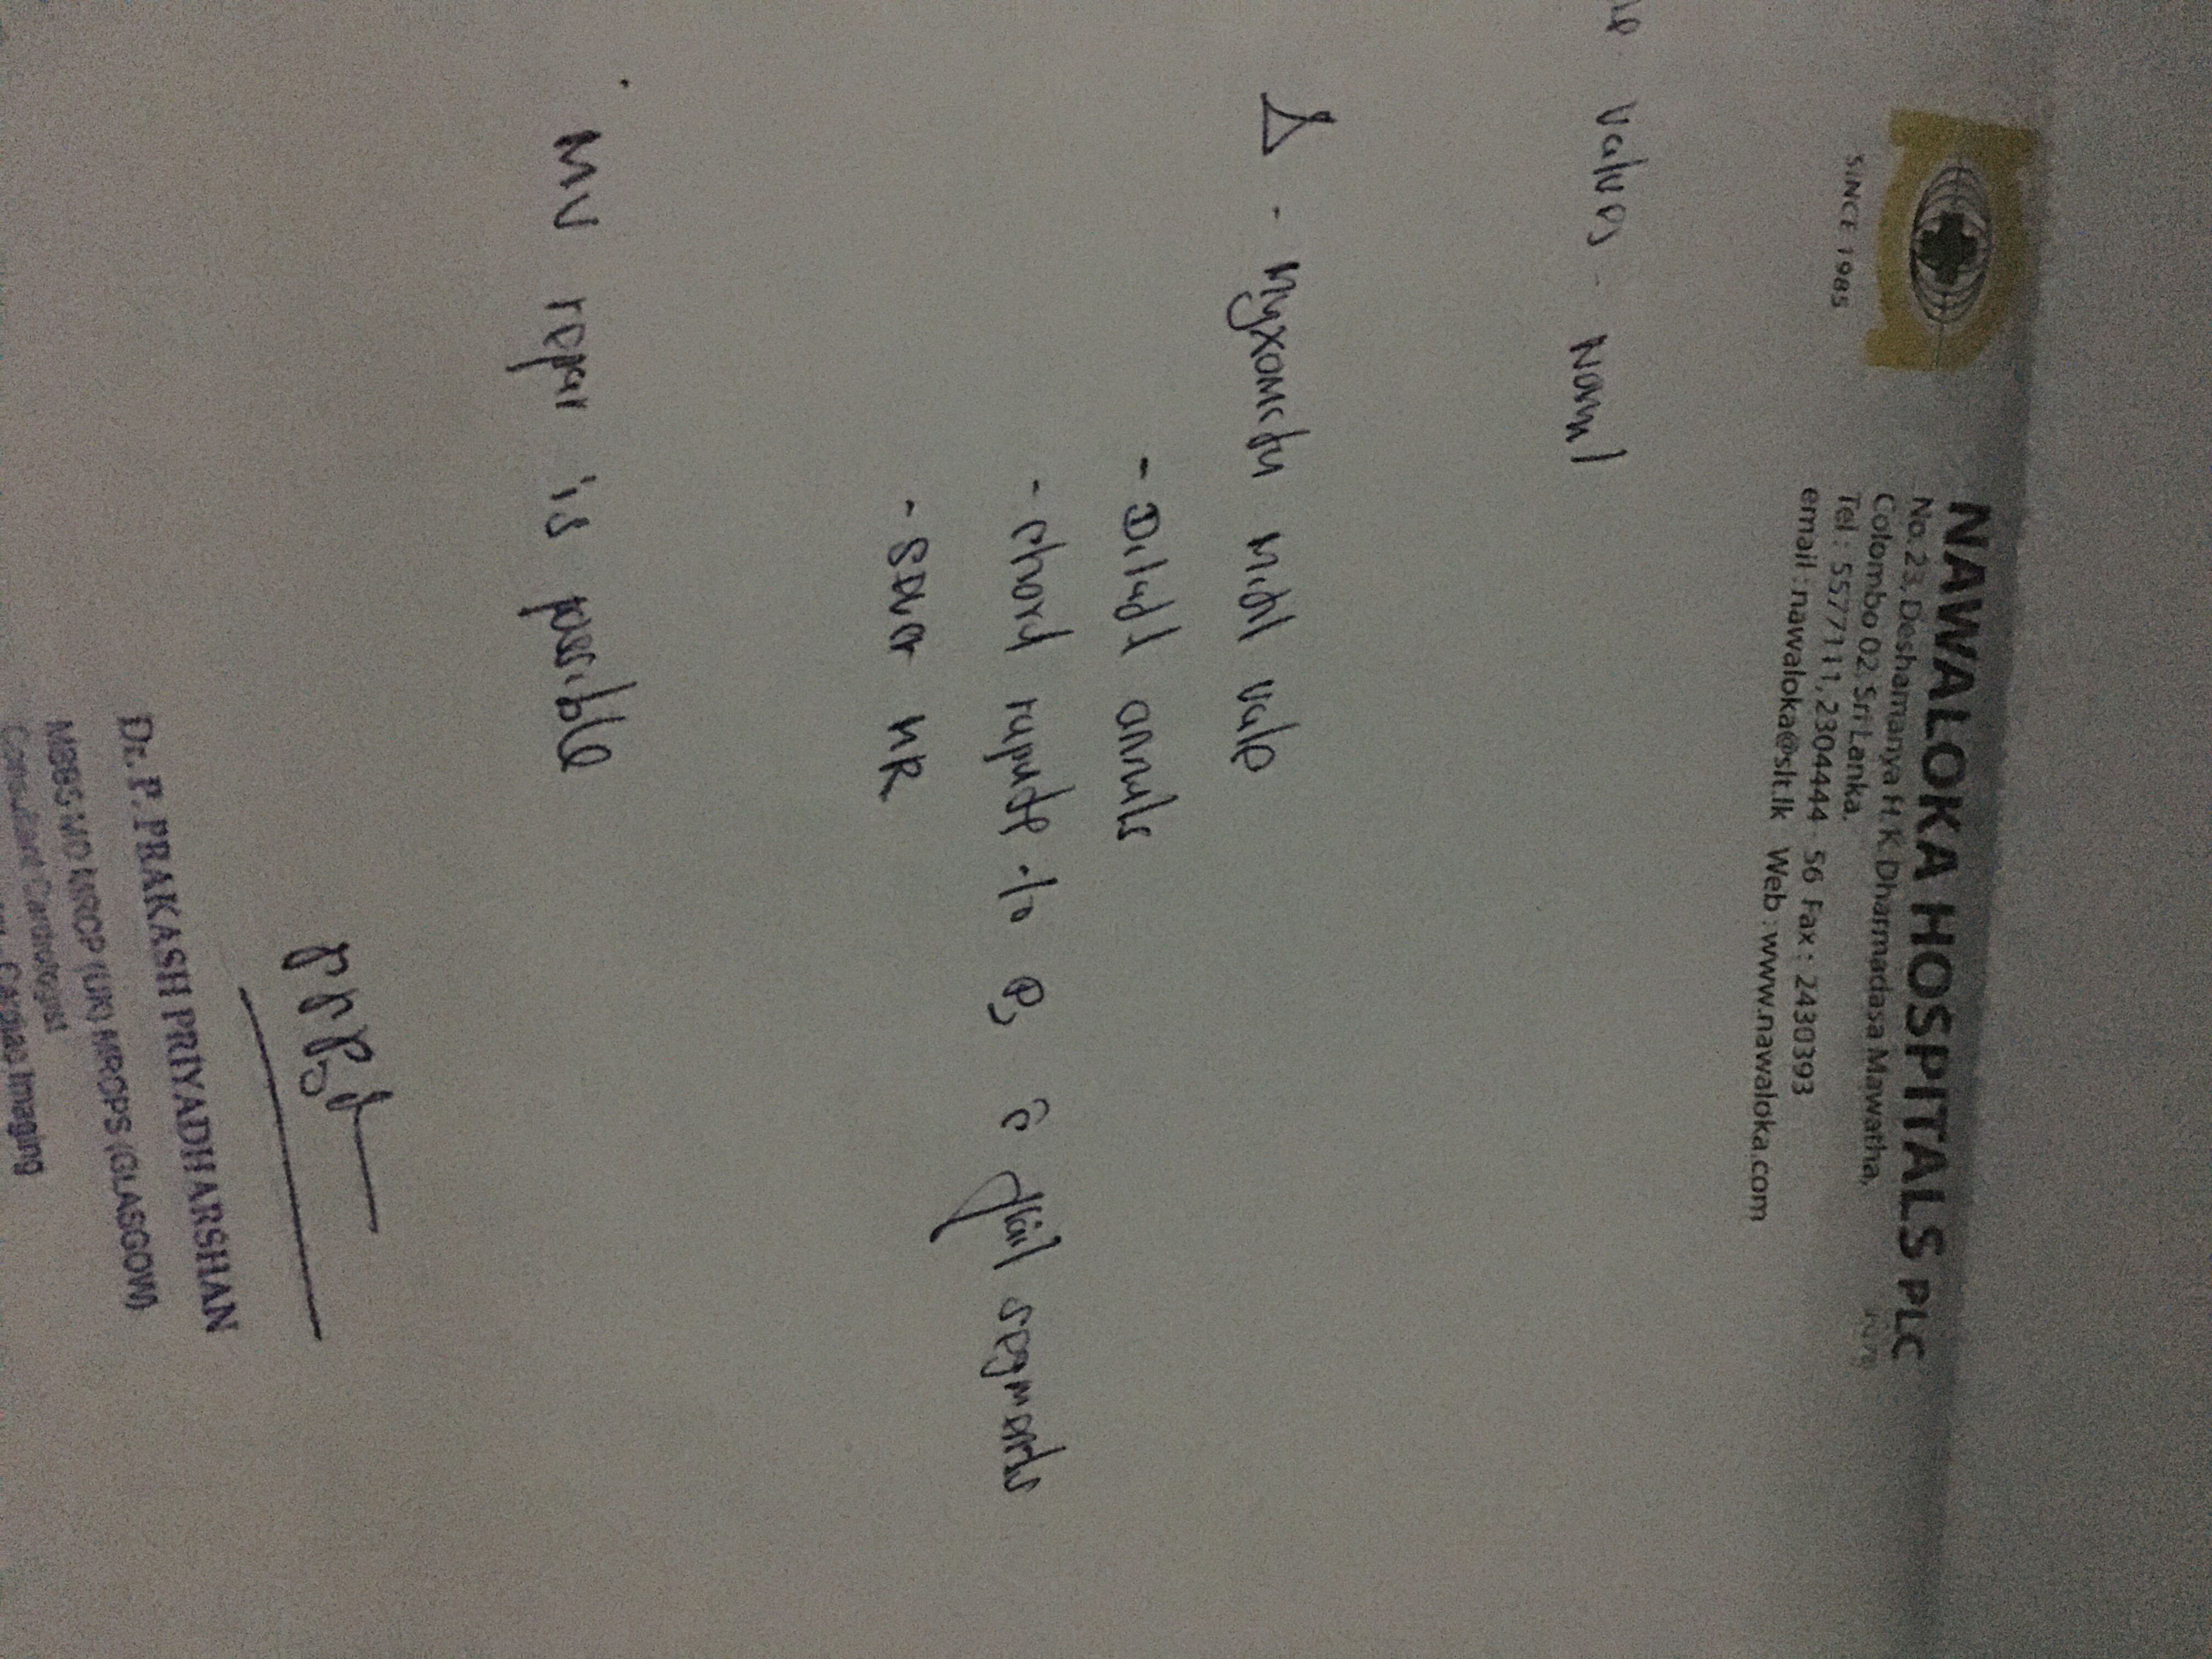 SINCE 1985
NAWALOKA HOSPITALS PLC
No. 23, Deshamanya H. K. Dharmadasa Mawatha,
Colombo 02, Sri Lanka.
Tel : 5577111, 2304444 - 56 Fax : 2430393
email : nawaloka@slt.lk Web : www.nawaloka.com
valves - Normal
Δ - Myxomatous Mitral valve
- Dilated annulus
- chordal rupture
segments
- severe MR
MV repair is possible
Dr. P. PRAKASH PRIYADHARSHAN
MBBS MD MRCP (UK) MRCPS (GLASGOW)
Consultant Cardiologist
Cardiac Imaging